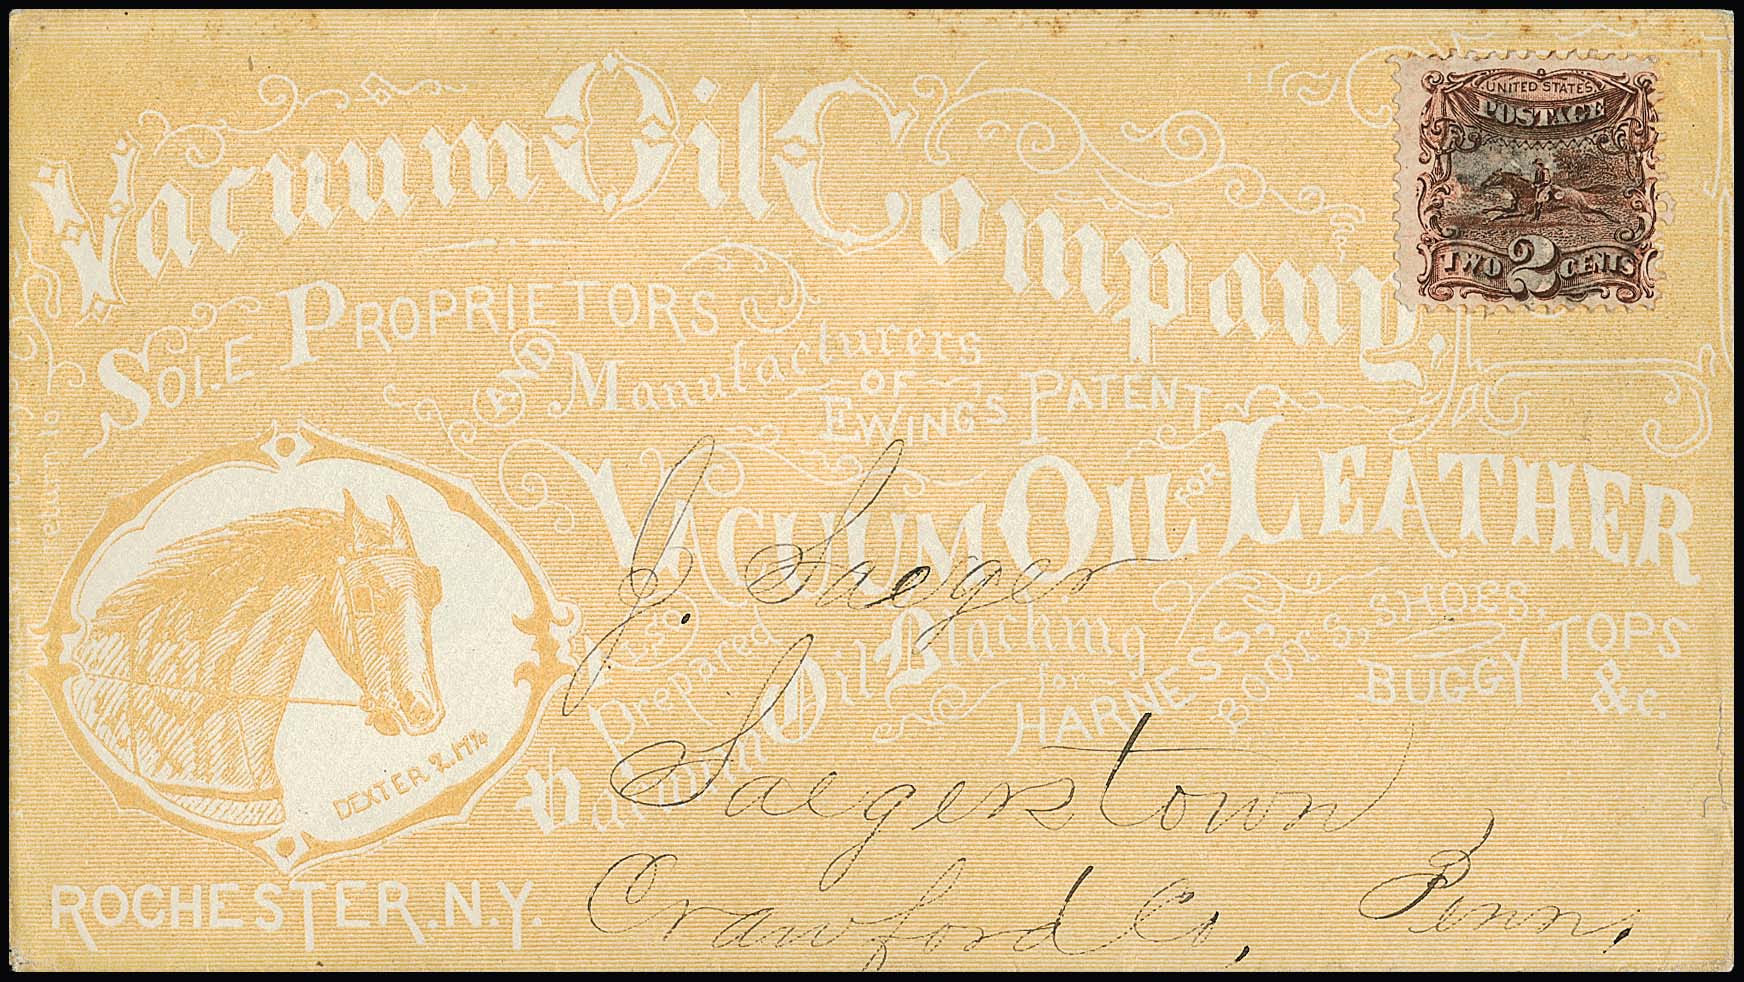 Vacuum Oil Company,
UNITED STATES
POSTAGE
TWO 2 CENTS
SOLE PROPRIETORS
AND Manufacturers
OF
EWINGS PATENT
VACUUM OIL FOR LEATHER
ALSO
Prepared
Vacuum Oil Blacking
for
HARNESS, BOOTS, SHOES,
BUGGY TOPS
&c.
return to
DEXTER 2.17¼
ROCHESTER. N.Y.
J. Saeger
Saegerstown
Crawford Co, Penn,